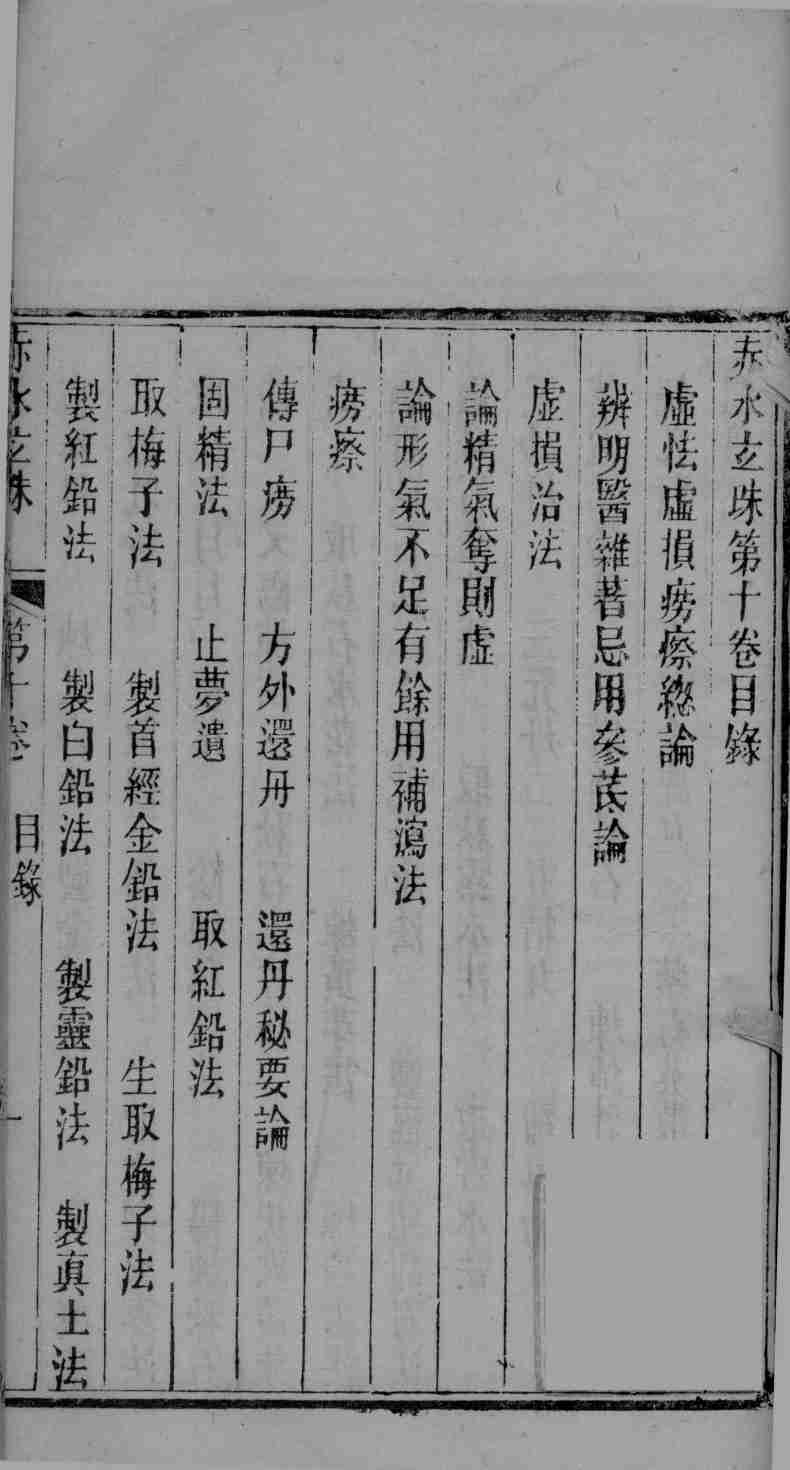 赤水玄珠第十卷目錄
虛怯虛損癆瘵總論
辨明醫雜著忌用參芪論
虛損治法
論精氣奪則虛
論形氣不足有餘用補瀉法
癆瘵
傳尸癆　方外還丹　還丹秘要論
固精法　止夢遺　取紅鉛法
取梅子法　製首經金鉛法　生取梅子法
製紅鉛法　製白鉛法　製靈鉛法　製真土法
赤水玄珠　第十卷　目錄　一